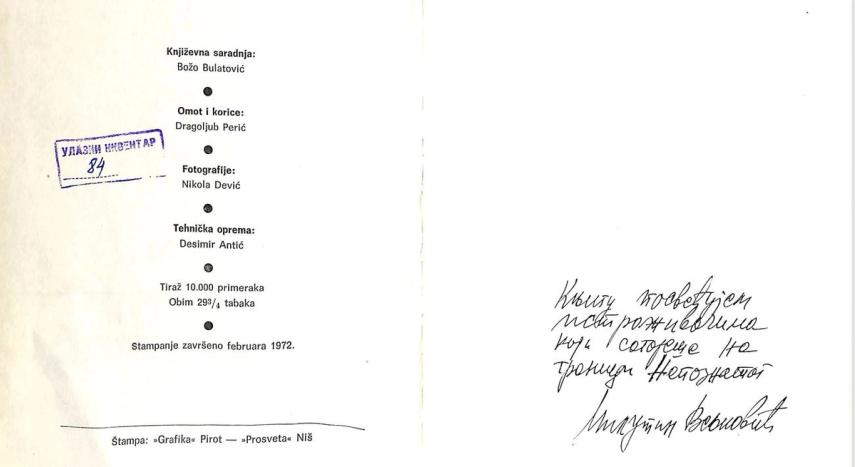 Književna saradnja:
Božo Bulatović
Omot i korice:
Dragoljub Perić
УЛАЗНИ ИНВЕНТАР
84
Fotografije:
Nikola Dević
Tehnička oprema:
Desimir Antić
Tiraž 10.000 primeraka
Obim 29³/₄ tabaka
Štampanje završeno februara 1972.
Štampa: »Grafika« Pirot — »Prosveta« Niš
Књигу посвећујем
истраживачима
који на
граници Непознатог
Милутин